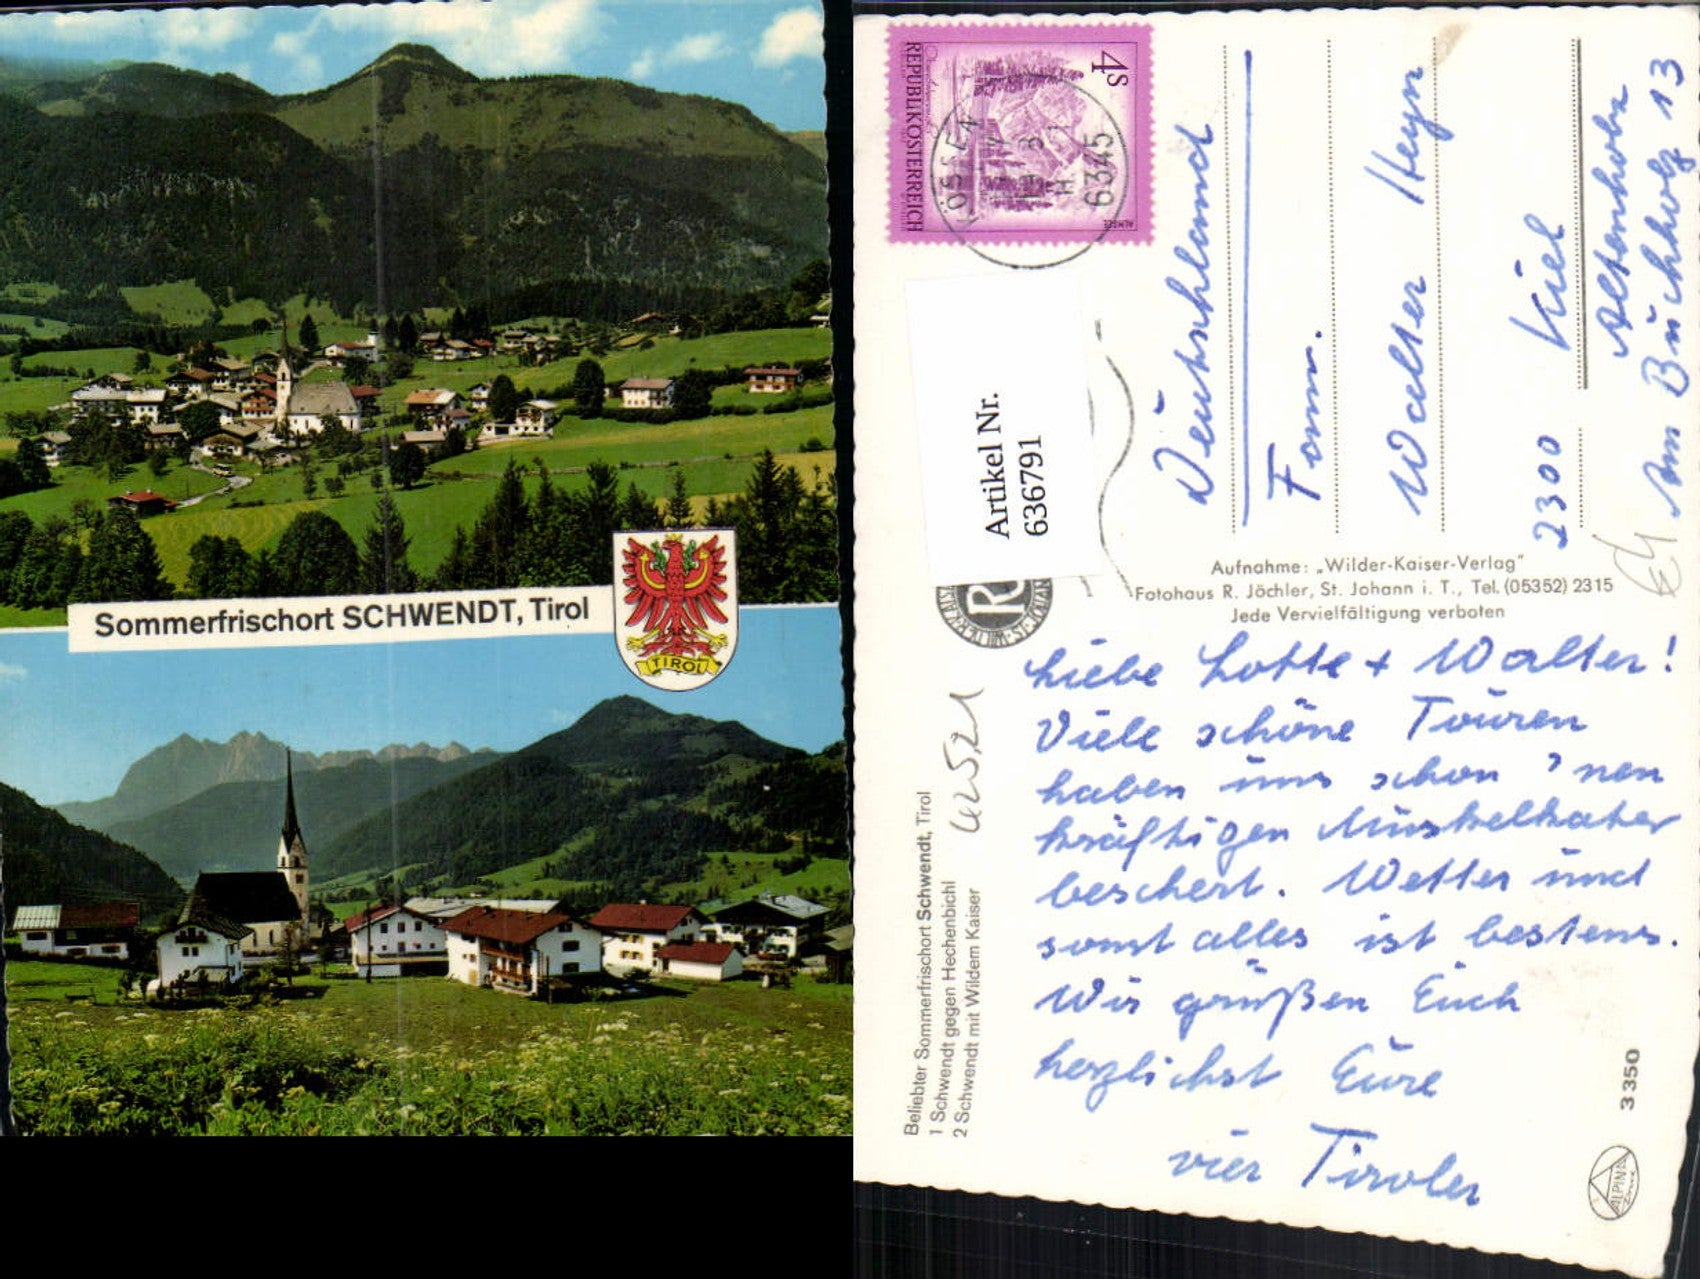 Sommerfrischort SCHWENDT, Tirol
TIROL
REPUBLIK ÖSTERREICH
4S
ALMSEE
KÖSSEN
6345
Artikel Nr.
636791
Deutschland
Fam.
Walter Heyn
2300 Kiel
Altenholz
Am Buchholz 13
Aufnahme: „Wilder-Kaiser-Verlag"
Fotohaus R. Jöchler, St. Johann i. T., Tel. (05352) 2315
Jede Vervielfältigung verboten
Beliebter Sommerfrischort Schwendt, Tirol
1 Schwendt gegen Hechenbichl
2 Schwendt mit Wildem Kaiser
Liebe Lotte + Walter!
Viele schöne Touren
haben uns schon 'nen
kräftigen Muskelkater
beschert. Wetter und
sonst alles ist bestens.
Wir grüßen Euch
herzlichst Eure
vier Tiroler
3350
ALPINA
Druck